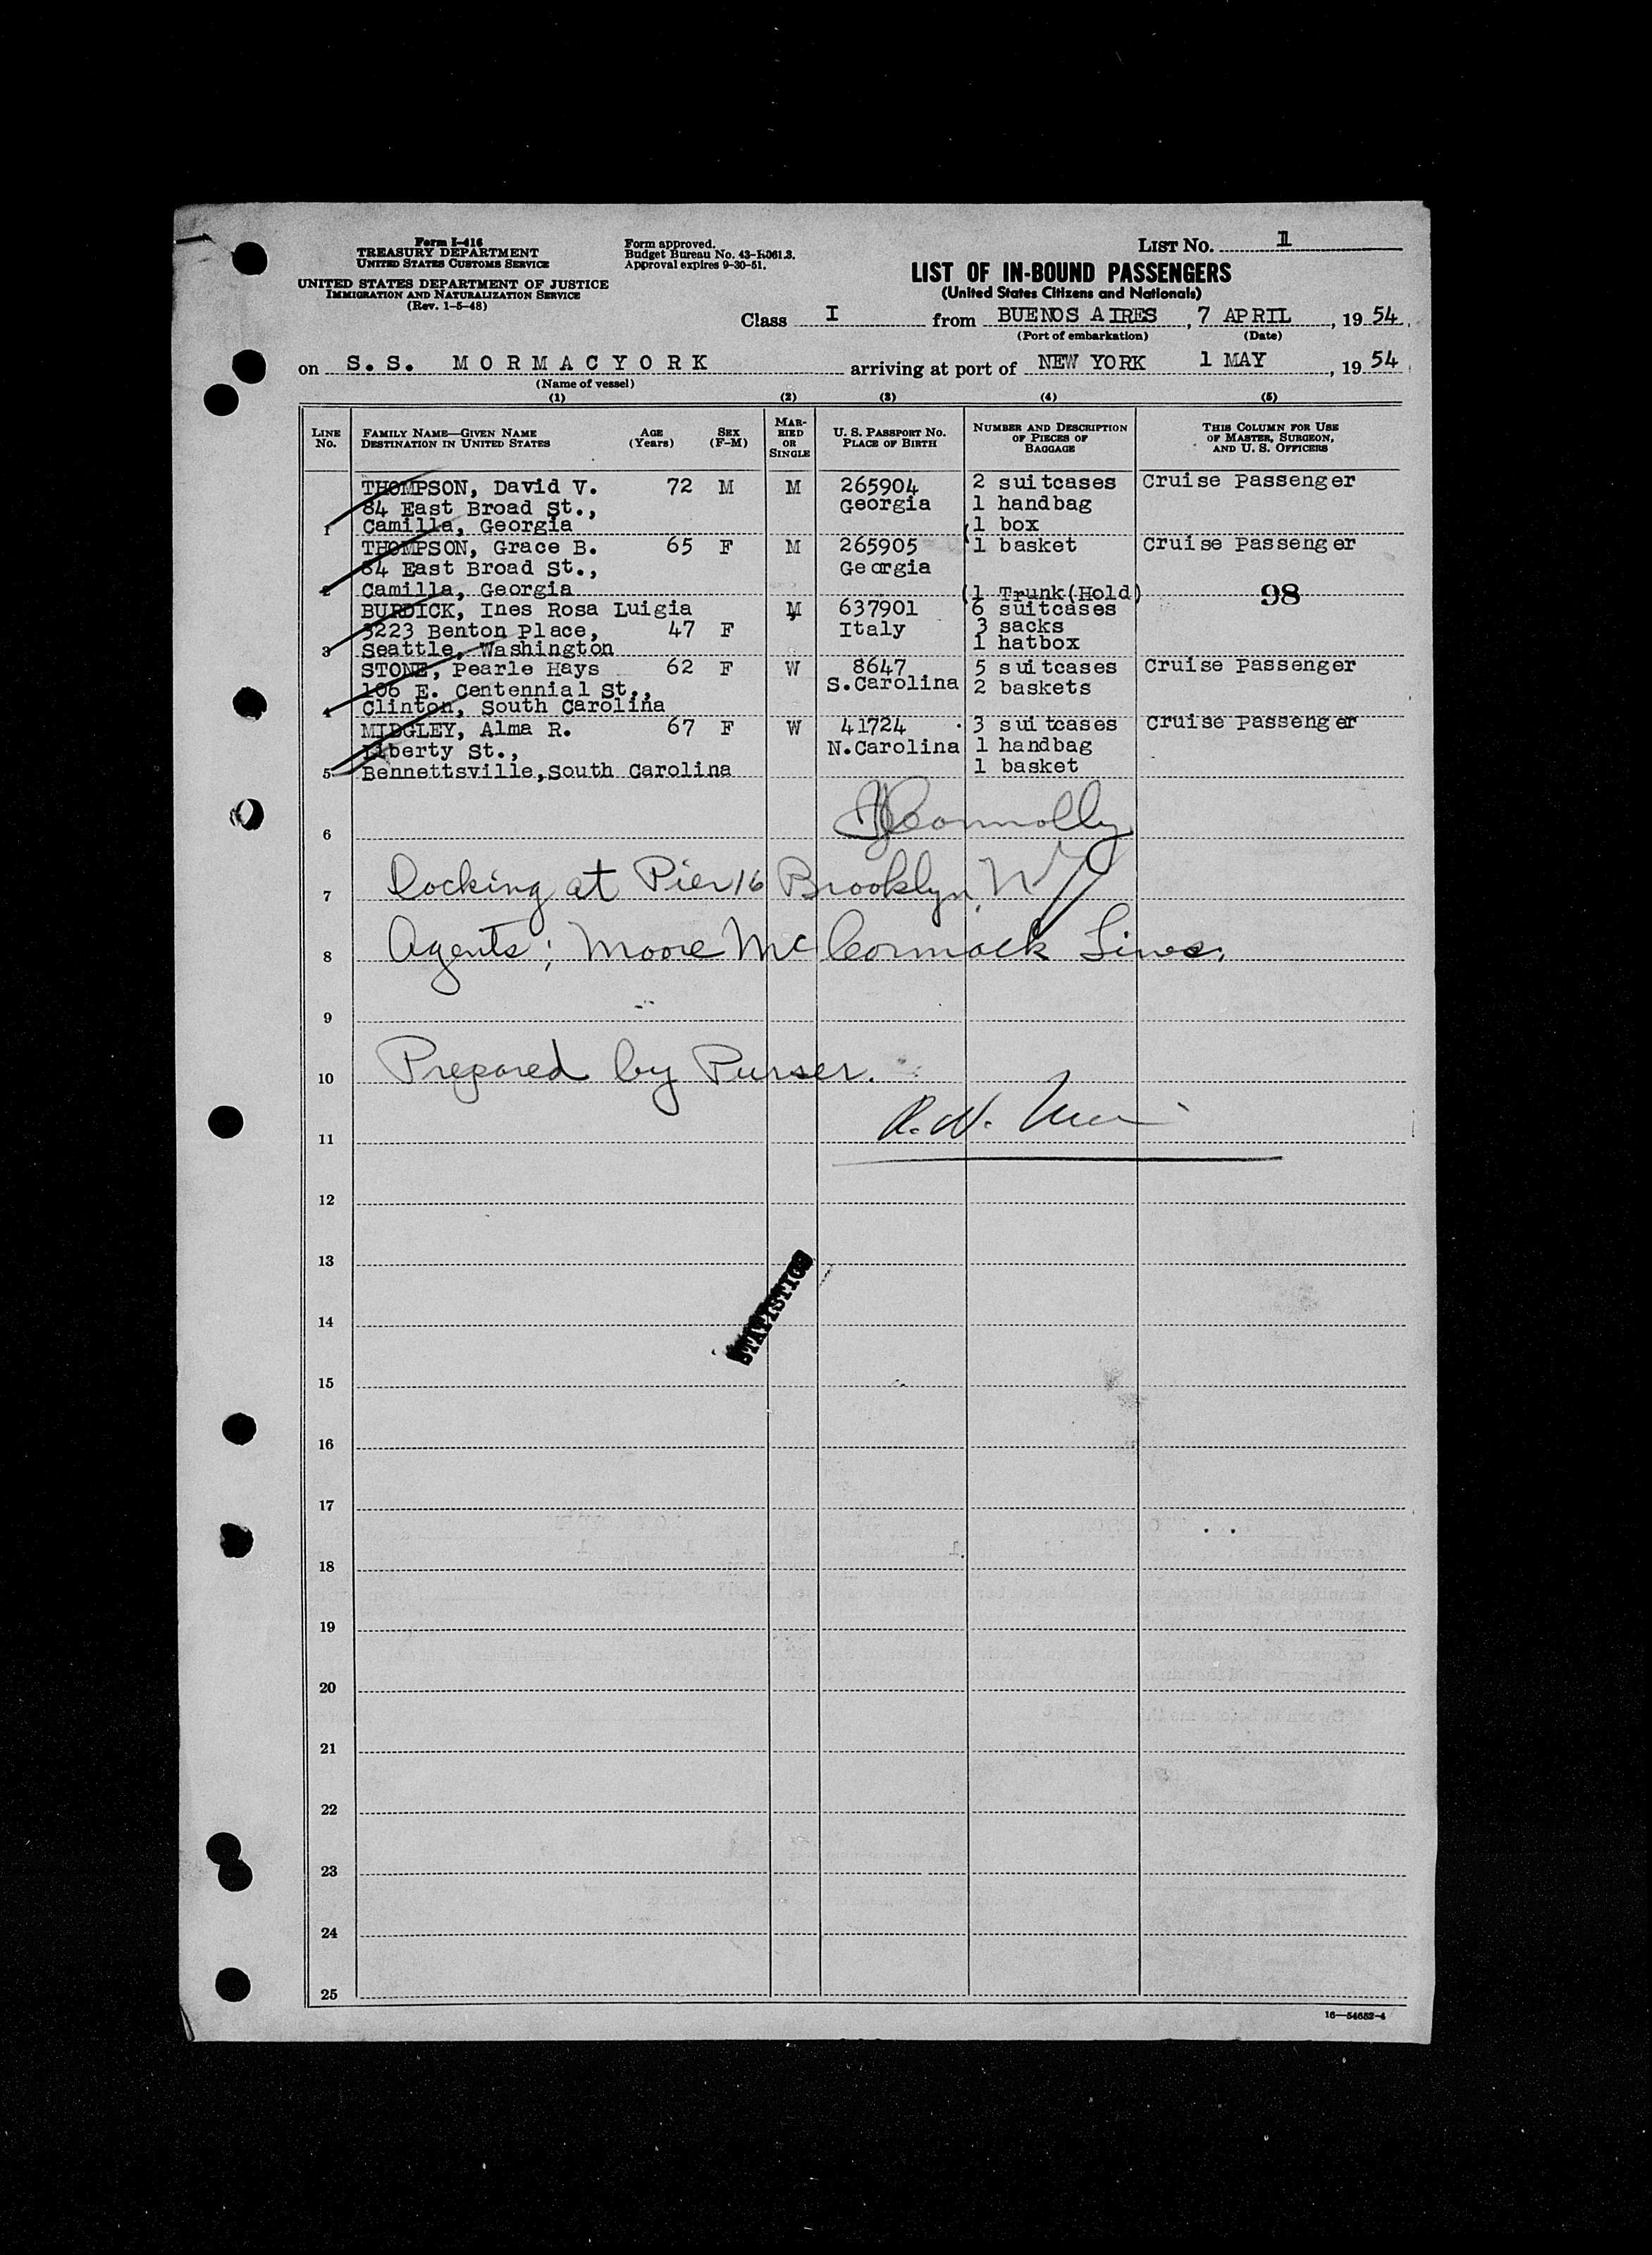 Form I-416
TREASURY DEPARTMENT
UNITED STATES CUSTOMS SERVICE
UNITED STATES DEPARTMENT OF JUSTICE
IMMIGRATION AND NATURALIZATION SERVICE
(Rev. 1-5-48)
Form approved.
Budget Bureau No. 43-R061.3.
Approval expires 9-30-51.
LIST NO. 1
LIST OF IN-BOUND PASSENGERS
(United States Citizens and Nationals)
Class I from BUENOS AIRES, 7 APRIL, 1954
(Port of embarkation) (Date)
on S.S. MORMACYORK arriving at port of NEW YORK 1 MAY, 1954
(Name of vessel)
(1) (2) (3) (4) (5)
LINE NO. FAMILY NAME—GIVEN NAME DESTINATION IN UNITED STATES AGE (Years) SEX (F-M) MARRIED OR SINGLE U. S. PASSPORT NO. PLACE OF BIRTH NUMBER AND DESCRIPTION OF PIECES OF BAGGAGE THIS COLUMN FOR USE OF MASTER, SURGEON, AND U. S. OFFICERS
THOMPSON, David V. 72 M M 265904 2 suitcases Cruise Passenger
84 East Broad St., Georgia 1 handbag
1 Camilla, Georgia 1 box
THOMPSON, Grace B. 65 F M 265905 1 basket Cruise Passenger
84 East Broad St., Georgia
2 Camilla, Georgia (1 Trunk(Hold) 98
BURDICK, Ines Rosa Luigia M 637901 6 suitcases
3223 Benton Place, 47 F Italy 3 sacks
3 Seattle, Washington 1 hatbox
STONE, Pearle Hays 62 F W 8647 5 suitcases Cruise Passenger
106 E. Centennial St., S.Carolina 2 baskets
4 Clinton, South Carolina
MIDGLEY, Alma R. 67 F W 41724 3 suitcases Cruise Passenger
Liberty St., N.Carolina 1 handbag
5 Bennettsville, South Carolina 1 basket
6 Connolly
7 Docking at Pier 16 Brooklyn NY
8 Agents; Moore McCormack Lines.
9
10 Prepared by Purser.
11 R.W.
12
13
STATISTICS
14
15
16
17
18
19
20
21
22
23
24
25
16—54652-4